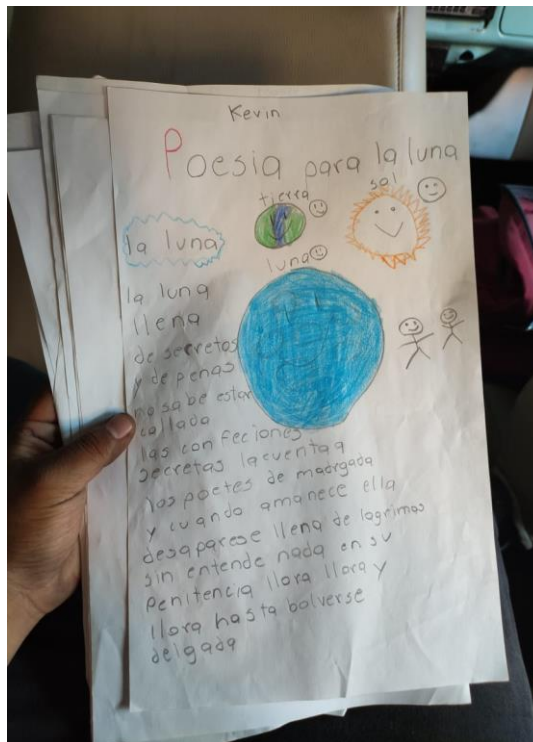 Kevin
Poesia para la luna
tierra
sal
la luna
luna
la luna
llena
de secretos
y de penas
no sabe estar
callada
las confeciones
secretas lacuenta a
los poetes de madrgada
y cuando amanece ella
desaparese llena de lagrimas
sin entende nada en su
penitencia llora llora y
llora hasta bolverse
delgada